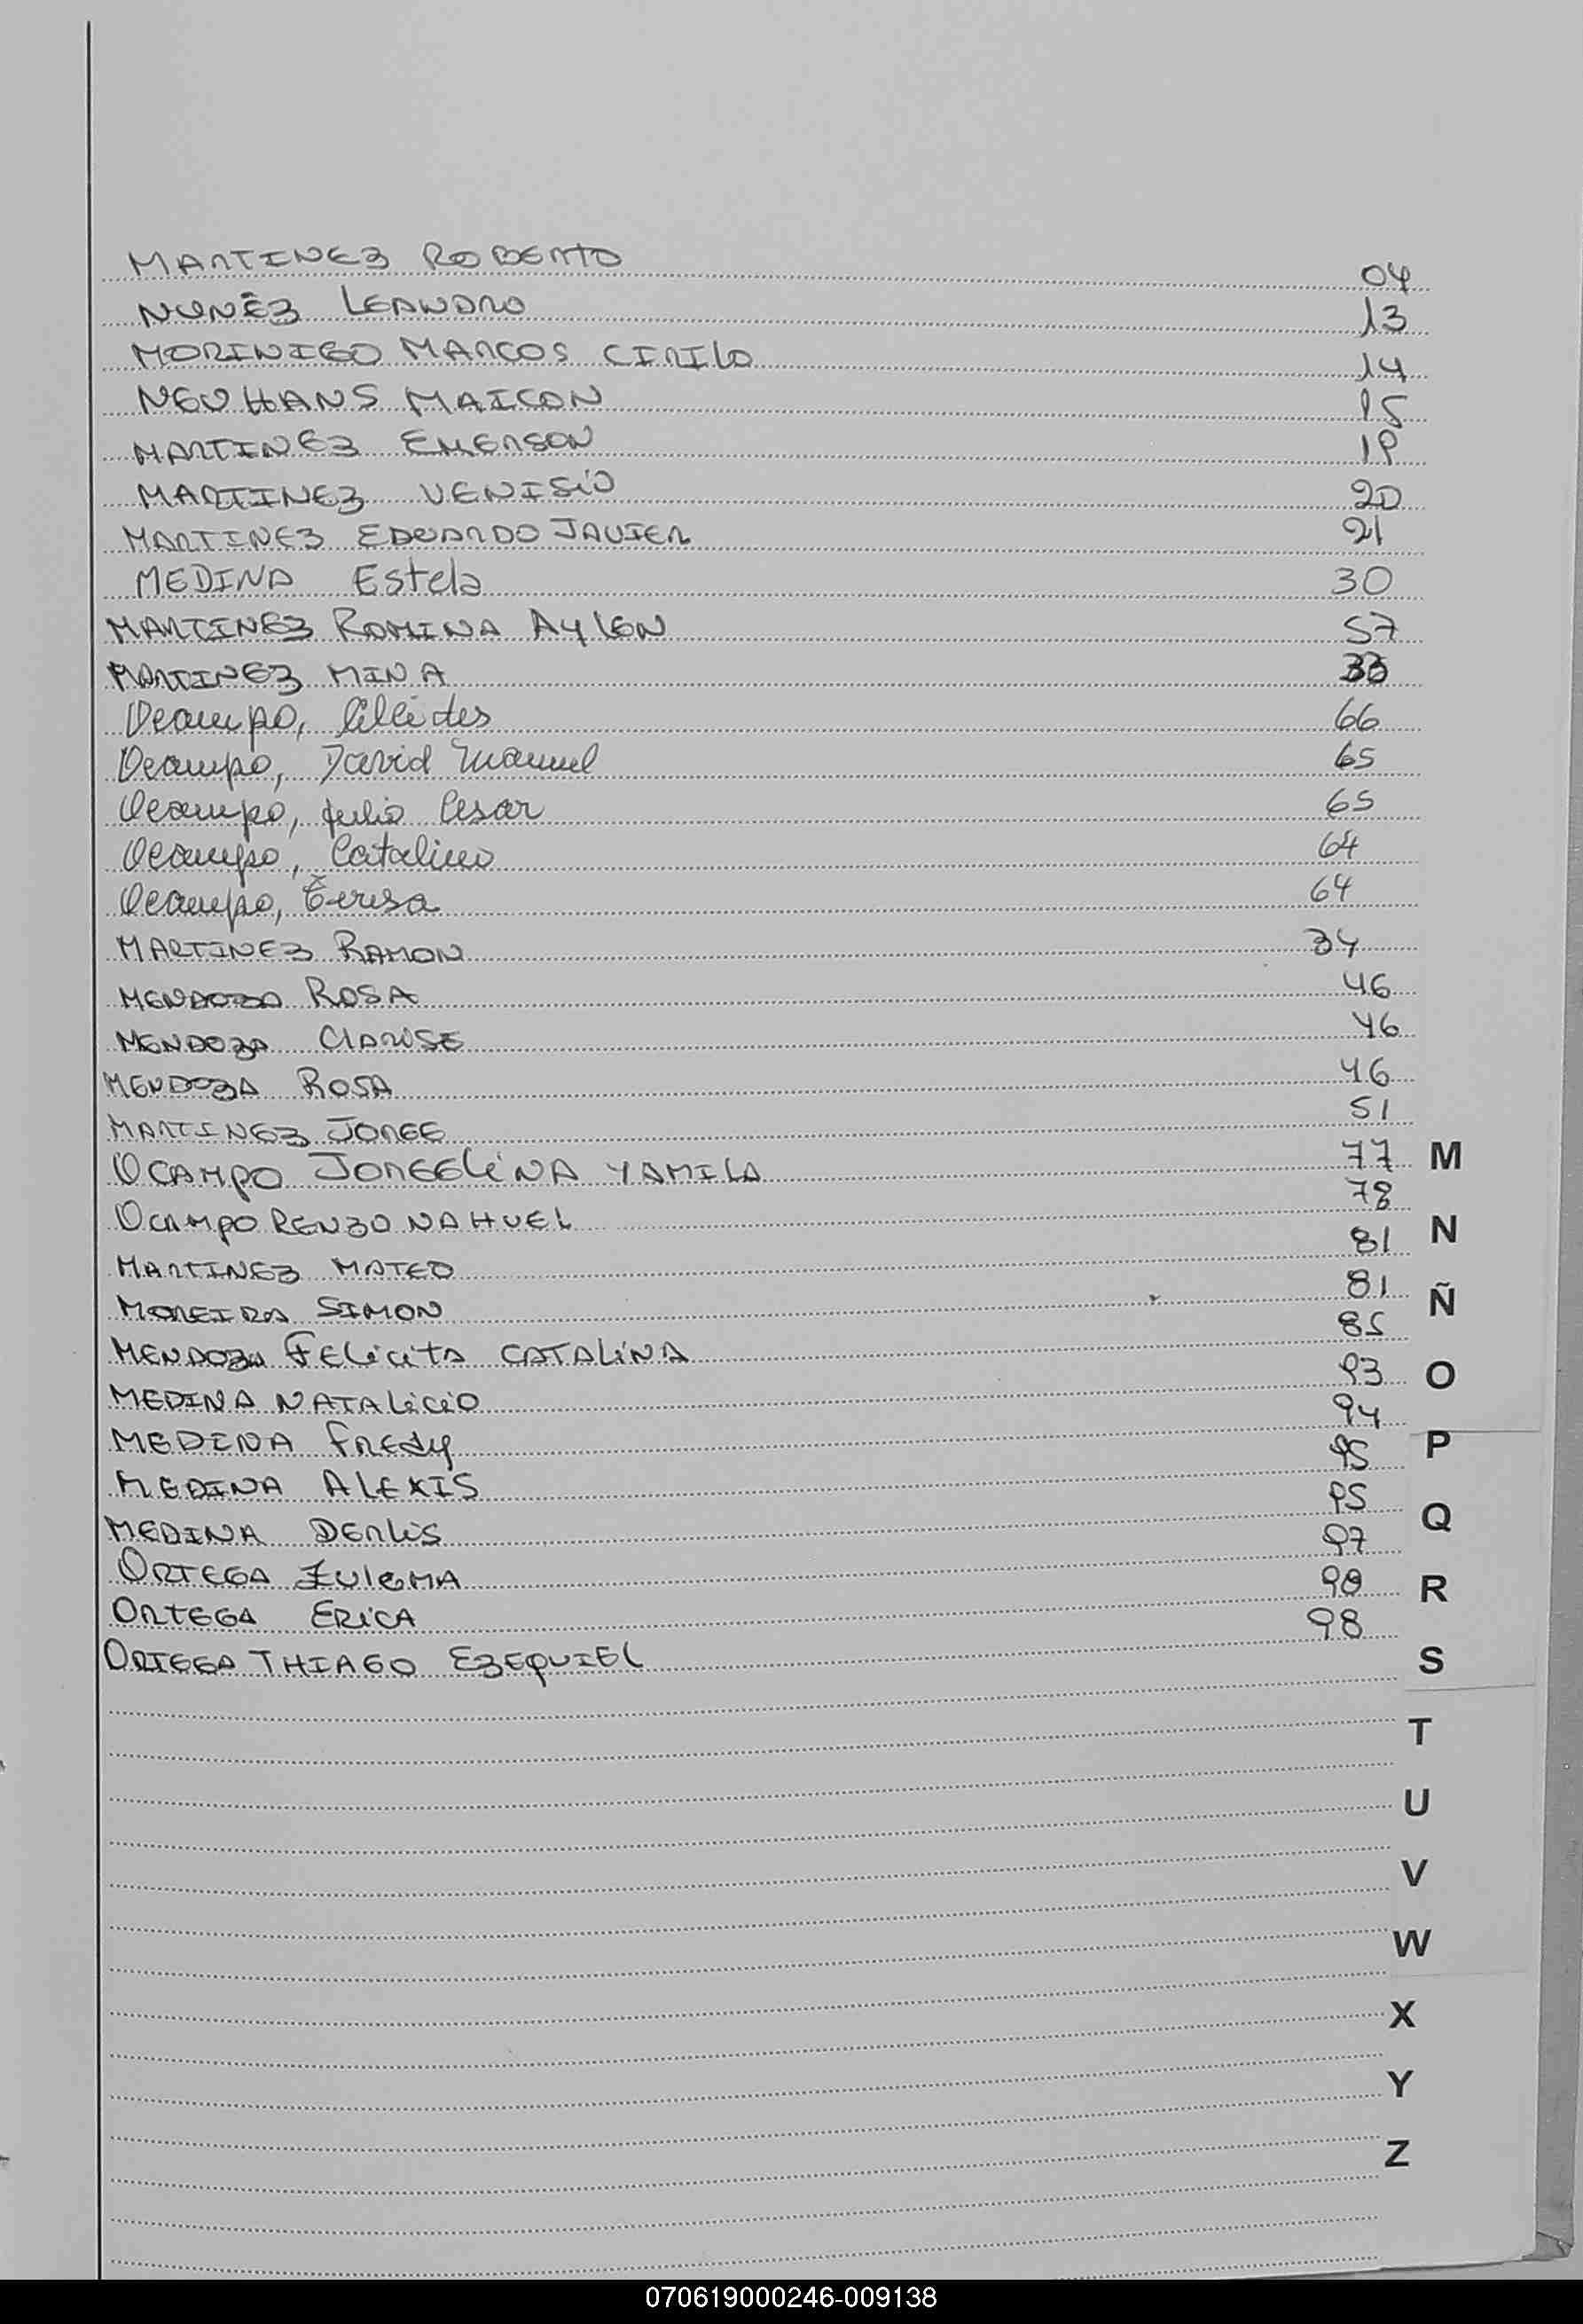 MARTINEZ ROBERTO 04
NUNEZ LEANDRO 13
MORINIGO MARCOS CIRILO 14
NEUHANS MAICON 15
MARTINEZ EMERSON 19
MARTINEZ VENISIO 20
MARTINEZ EDUARDO JAVIER 21
MEDINA Estela 30
MARTINEZ ROMINA AYLEN 57
MARTINEZ MINA 33
Ocampo, 66
Ocampo, David Manuel 65
Ocampo, Julio Cesar 65
Ocampo, Catalino 64
Ocampo, Teresa 64
MARTINEZ RAMON 34
MENDOZA ROSA 46
MENDOZA CLARISE 46
MENDOZA ROSA 46
MARTINEZ JORGE 51
OCAMPO JORGELINA YAMILA 77
OCAMPO RENZO NAHUEL 78
MARTINEZ MATEO 81
MOREIRA SIMON 81
MENDOZA FELICITA CATALINA 85
MEDINA NATALICIO 93
MEDINA FREDY 94
MEDINA ALEXIS 95
MEDINA DERLIS 95
ORTEGA ZULEMA 97
ORTEGA ERICA 98
ORTEGA THIAGO EZEQUIEL 98
M
N
Ñ
O
P
Q
R
S
T
U
V
W
X
Y
Z
070619000246-009138